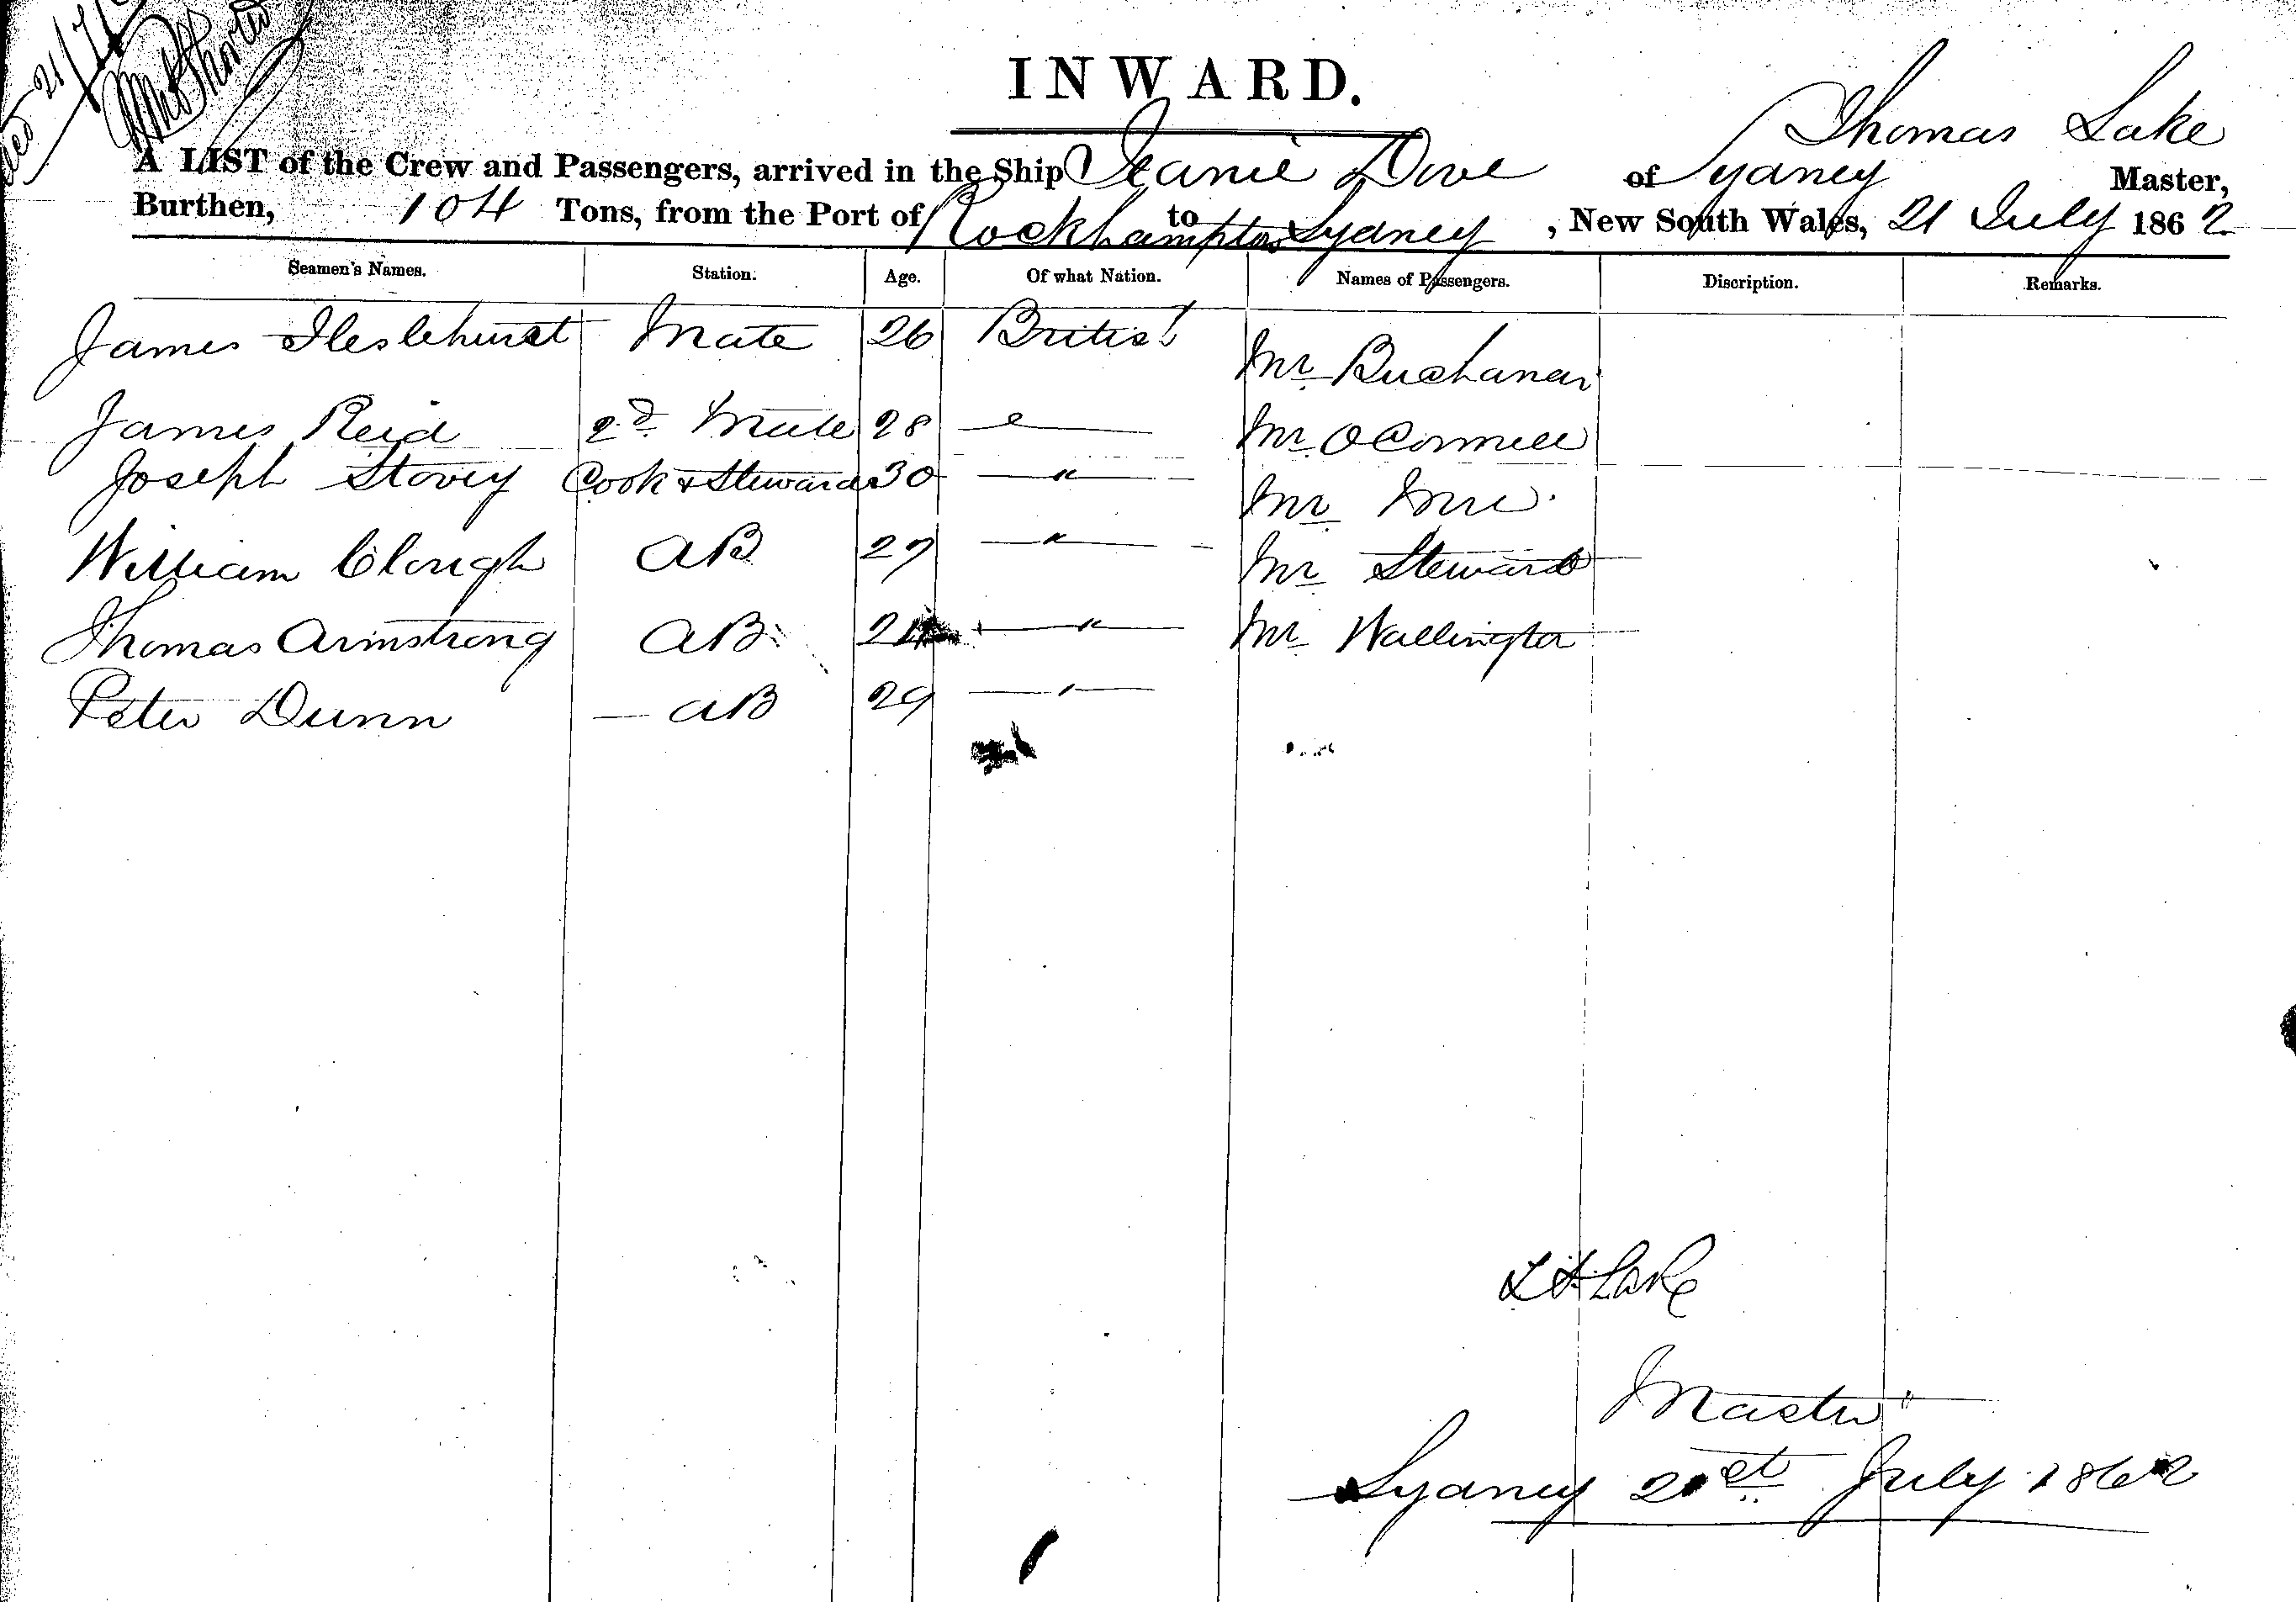 21/7/
INWARD.
Thomas Lake
A LIST of the Crew and Passengers, arrived in the Ship Jeanie Dove of Sydney Master,
Burthen, 104 Tons, from the Port of Rockhampton to Sydney , New South Wales, 21 July 1862
Seamen's Names. Station. Age. Of what Nation. Names of Passengers. Discription. Remarks.
James Mate 26 British Mr Buchanan
James Reid 2nd Mate 28 Mr OConnell
Joseph Stovey Cook & Steward 30 " Mr
William Clough AB 27 " Mr Steward
Thomas Armstrong AB 24 " Mr Wallington
Peter Dunn AB 29 "
Lake
Master
Sydney 21st July 1862